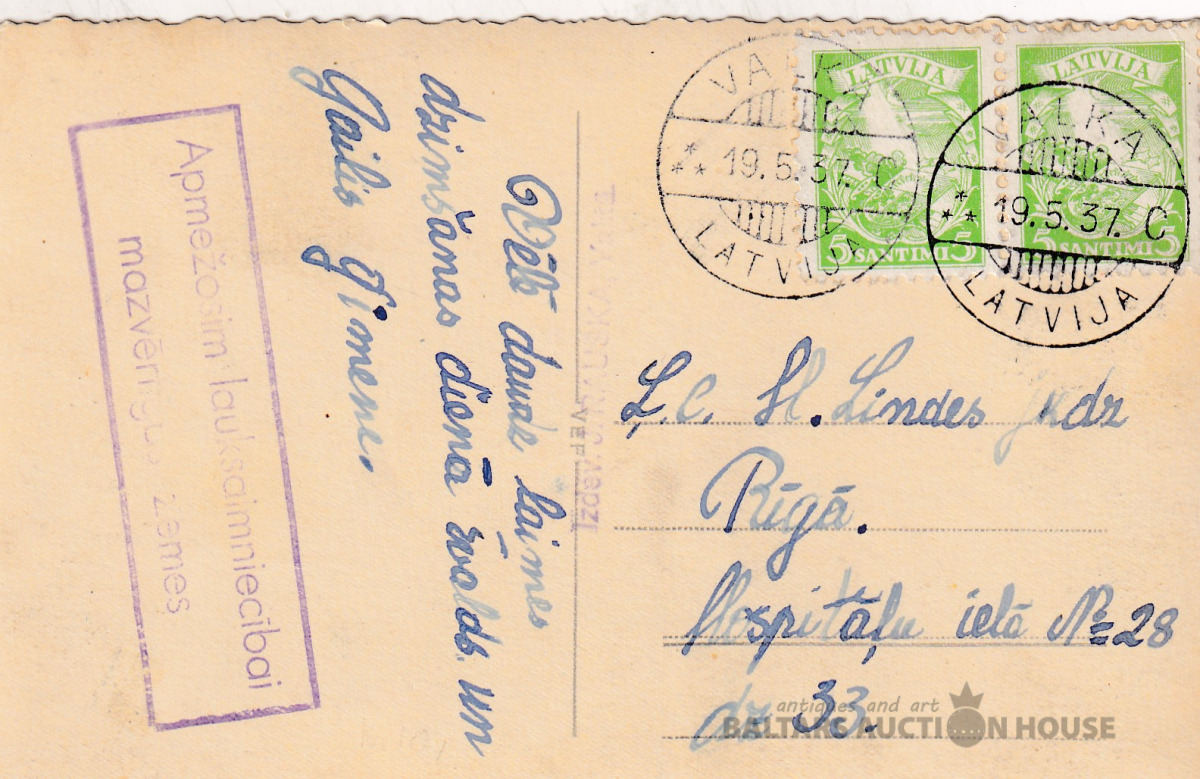 Vēlē daudz laimes
dzimšanas dienā
un
Gailis
ģimene.
Apmežosim lauksaimniecībai
mazvērtīgas zemes
VEF
LATVIJA
5 SANTIMI 5
LATVIJA
5 SANTIMI 5
VALKA
19.5.37. C
LATVIJA
VALKA
19.5.37. C
LATVIJA
Ļ. C. H. Lindes kdz
Rīgā.
Hospitāļu ielā № 28
dz 33.
antiques and art
BALTARS AUCTION HOUSE